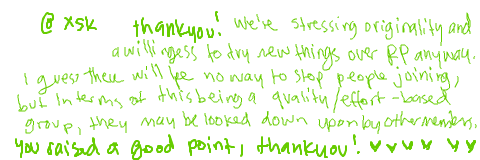 @ xsk thankyou! We're stressing originality and
a willingess to try new things over RP anyway.
I guess there will be no way to stop people joining,
but in terms of this being a quality/effort-based
group, they may be looked down upon by other members.
You raised a good point, thankyou! ♥ ♥ ♥ ♥ ♥ ♥